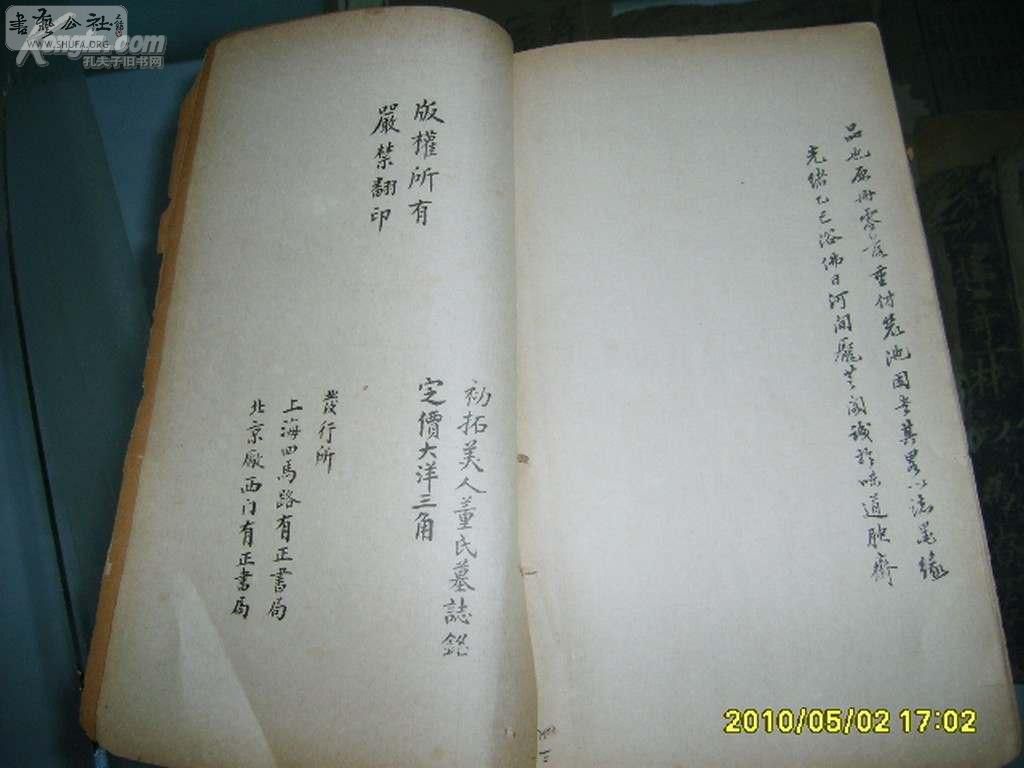 書藝公社
WWW.SHUFA.ORG
Kongfz.com
孔夫子旧书网
品也原冊零落重付裝池因書其畧以誌墨緣
光緒乙巳浴佛日河間龐芝閣識於味道腴齋
版權所有
嚴禁翻印
初拓美人董氏墓誌銘
定價大洋三角
發行所
上海四馬路有正書局
北京廠西门有正書局
2010/05/02 17:02